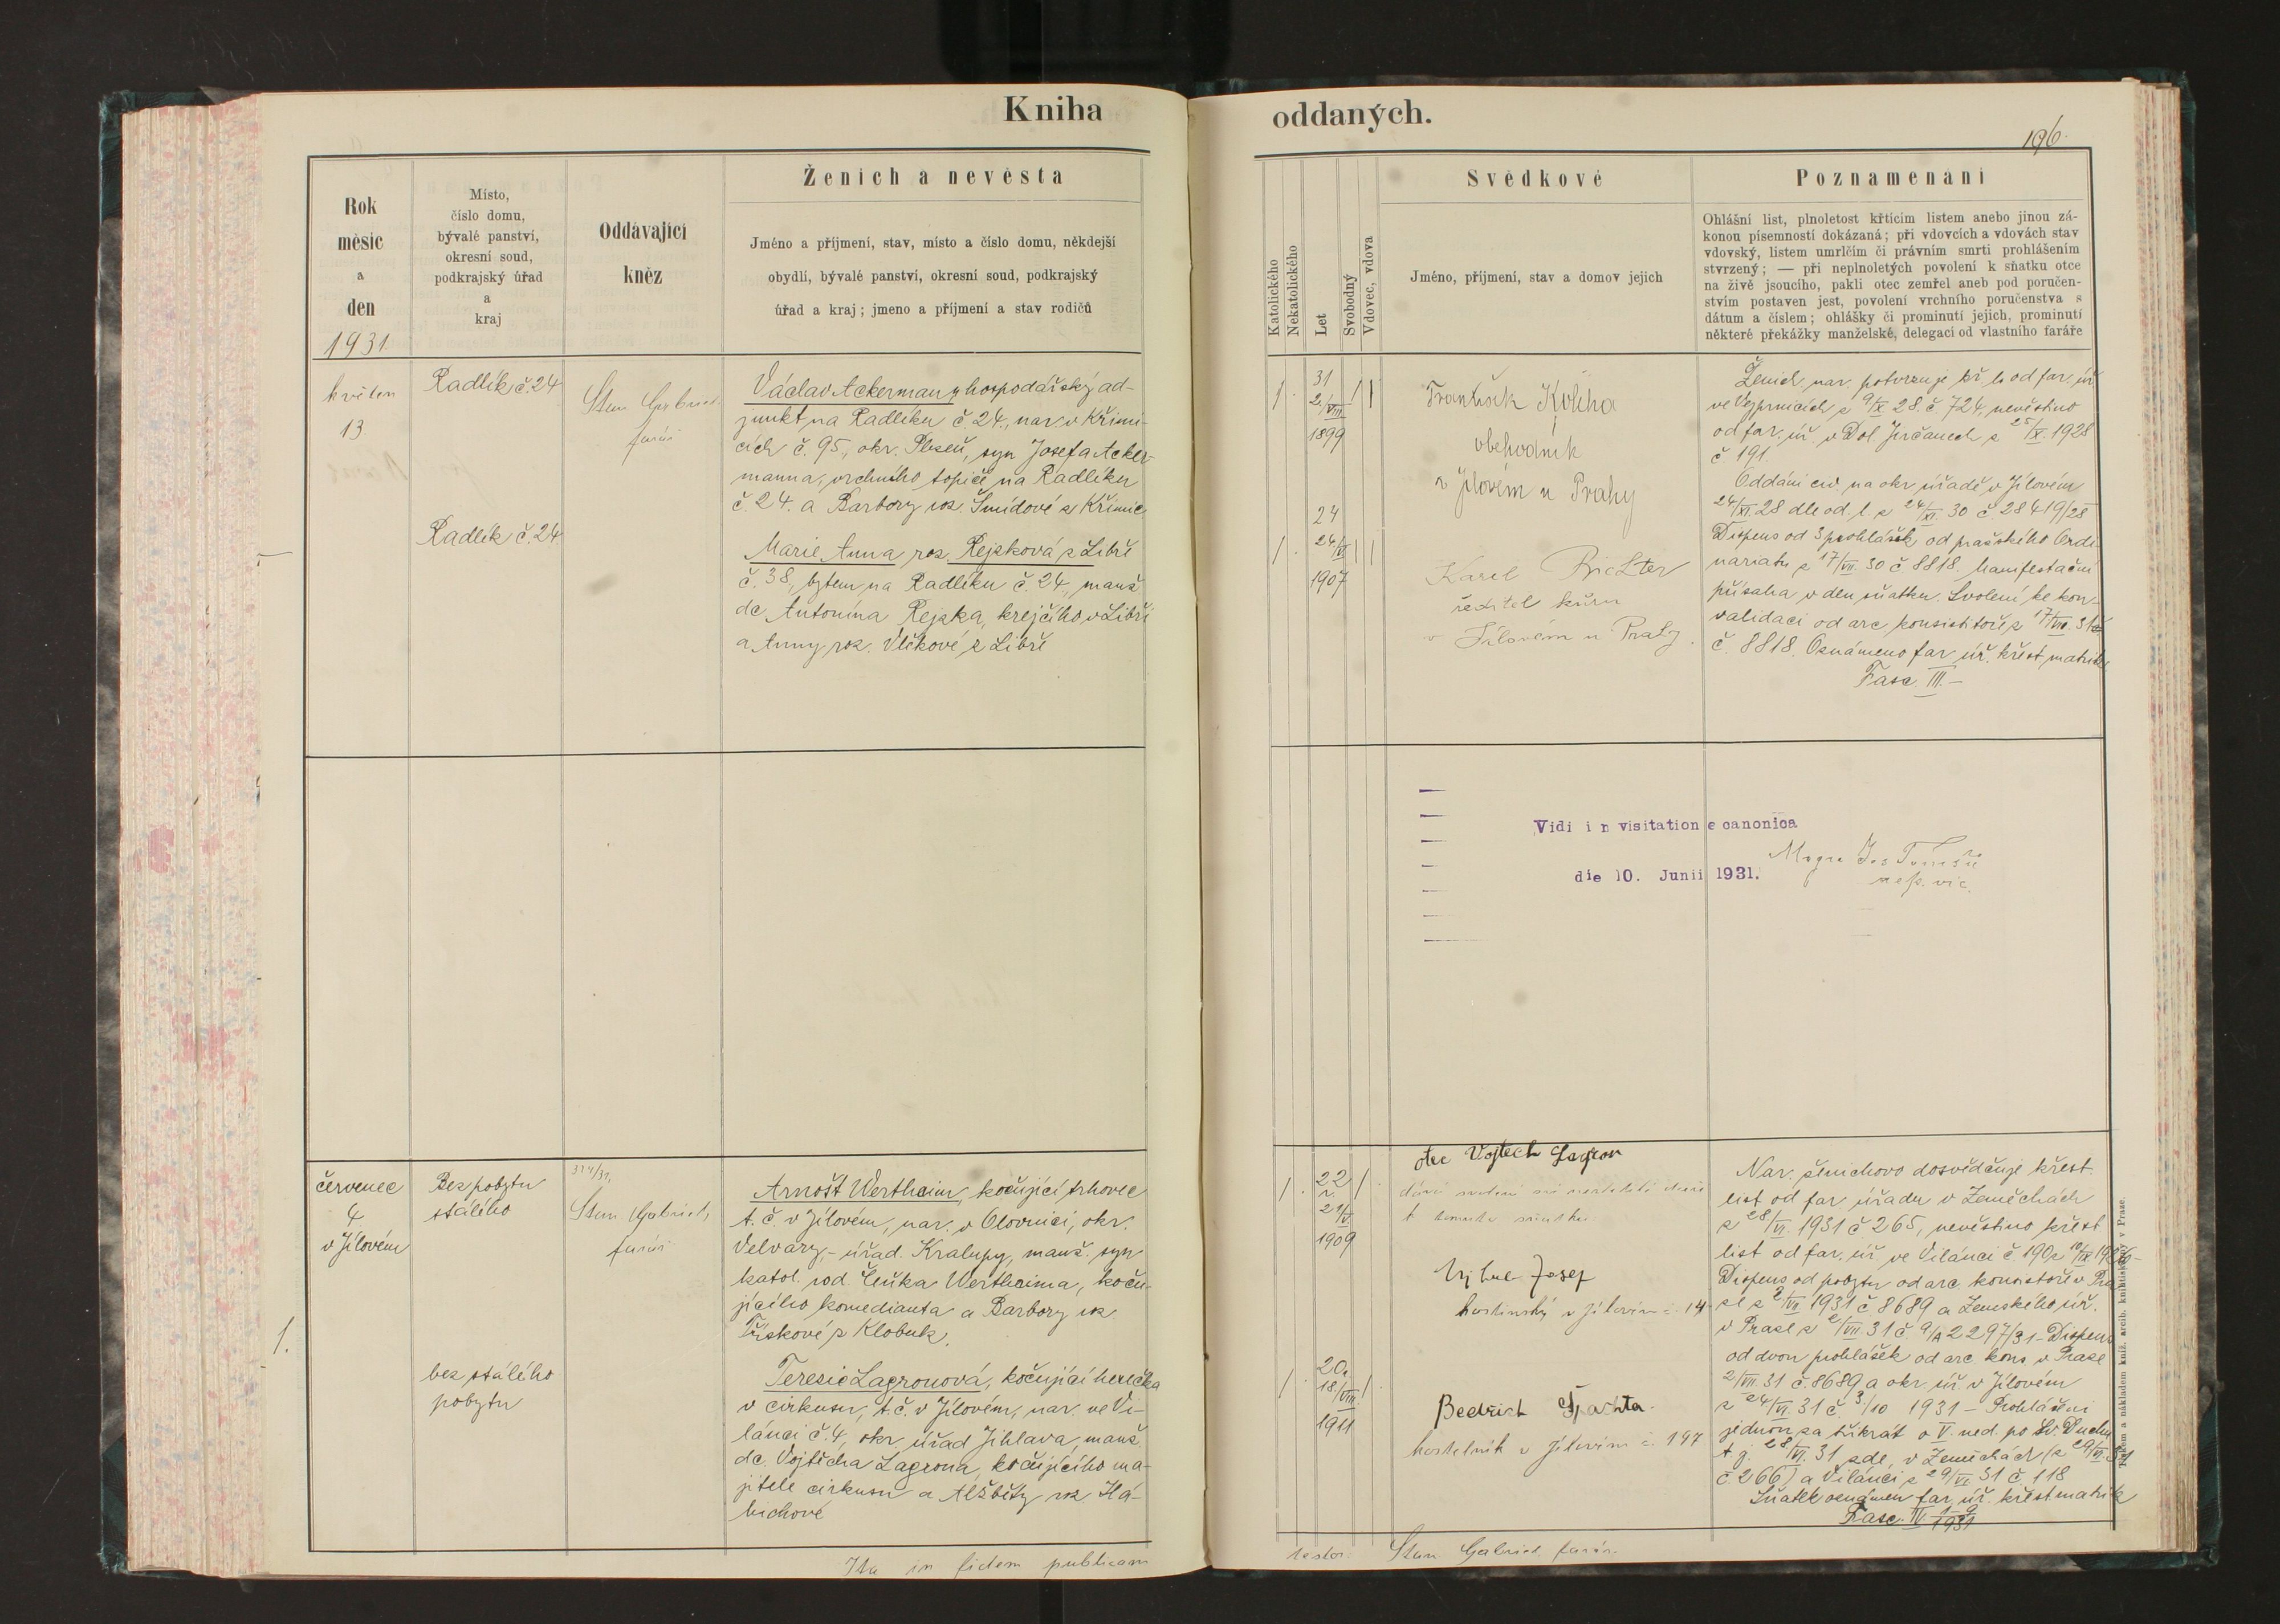 Kniha oddaných.
196.
Rok
měsíc
a
den
1931
Místo,
číslo domu,
bývalé panství,
okresní soud,
podkrajský úřad
a
kraj
Oddávající
kněz
Ženich a nevěsta
Jméno a příjmení, stav, místo a číslo domu, někdejší
obydlí, bývalé panství, okresní soud, podkrajský
úřad a kraj; jmeno a příjmení a stav rodičů
Katolického
Nekatolického
Let
Svobodný
Vdovec, vdova
Svědkové
Jméno, příjmení, stav a domov jejich
Poznamenání
Ohlášní list, plnoletost křticím listem anebo jinou zá-
konou písemností dokázaná; při vdovcích a vdovách stav
vdovský, listem umrlčím či právním smrti prohlášením
stvrzený; — při neplnoletých povolení k sňatku otce
na živě jsoucího, pakli otec zemřel aneb pod poručen-
stvím postaven jest, povolení vrchního poručenstva s
dátum a číslem; ohlášky či prominutí jejich, prominutí
některé překážky manželské, delegací od vlastního faráře
květen
13
Radlík č. 24
Stan. Gabriel,
farář
Václav Ackermann, hospodářský ad-
junkt na Radlíku č. 24., nar. v Křimi-
cích č. 95, okr. Plzeň, syn Josefa Acker-
manna, vrchního topiče na Radlíku
č. 24. a Barbory roz. Šmídové z Křimic
Radlík č. 24
Marie Anna roz. Rejsková z Libře
č. 38, bytem na Radlíku č. 24, manž.
dc. Antonína Rejska, krejčího v Libři
a Anny roz. Vlčkové z Libře
31
2/VIII
1899
24
24/V
1907
František
obchodník
v Jílovém u Prahy
Karel Richter
ředitel kůru
v Jílovém u Prahy.
Ženich. nar. potvrzuje kř. l. od far. úř.
ve Vejprnicích z 9/X 28. č. 724, nevěstino
od far. úř. v Dol. Jirčanech z 25/X. 1928
č 191
Oddáni civ. na okr. úřadě v Jílovém
24/XI 28 dle od. l. z 24/XI. 30 č. 28419/28
Dispens od 3 prohlášek od pražského Ordi-
nariatu z 17/VII 30 č 8818. Manifestační
přísaha v den sňatku. Svolení ke kon-
validaci od arc. konsistoře z 17/VII. 31
č. 8818. Oznámeno far. úř. křest. matrik
Fasc. III. —
Vidi in visitatione canonica
die 10. Junii 1931.
červenec
4
v Jílovém
Bez pobytu
stálého
Stan. Gabriel,
farář
Arnošt Wertheim, kočující trhovec
t. č. v Jílovém, nar. v Olovnici, okr.
Velvary, – úřad. Kralupy, manž. syn
katol. rod. Čeňka Wertheima, koču-
jícího komedianta a Barbory roz.
Třískové z Klobuk.
1.
bez stálého
pobytu
Teresie Lagronová, kočující herečka
v cirkusu, t. č. v Jílovém, nar. ve Vi-
lánci č. 4, okr. úřad Jihlava, manž.
dc. Vojtěcha Lagrona, kočujícího ma-
jitele cirkusu a Alžběty roz. Há-
bichové
22
21/V.
1909
20.
18./VIII.
1911
otec Vojtěch Lagron
k tomuto sňatku.
Josef
hostinský v Jílovém č. 14
Bedřich
kostelník v Jílovém č. 197
Nar. ženichovo dosvědčuje křest.
list od far. úřadu v Zeměchách
z 28/VI. 1931 č 265, nevěstino křest
list od far. úř. ve Vilánci č 190 z
Dispens od pobytu od arc. konsistoře v Pra-
ze z 2/VII 1931 č 8689 a Zemského úř.
v Praze z 2/VII. 31 č. 9/A 2297/31 – Dispens
od dvou prohlášek od arc. kons. v Praze
2/VII 31 č. 8689 a okr. úř. v Jílovém
z 24/VI. 31 č. 3/10 1931 – Prohlášeni
jednou za třikrát o V. ned. po Sv. Duchu
t. j. 28/VI. 31 zde, v Zeměchách (z 29/VI. 31
č. 266) a Vilánci z 29/VI. 31 č 118
Sňatek oznámen far. úř. křest. matrik
Fasc. IV 1-9 1931
Ita in fidem publicam
testor: Stan. Gabriel, farář.